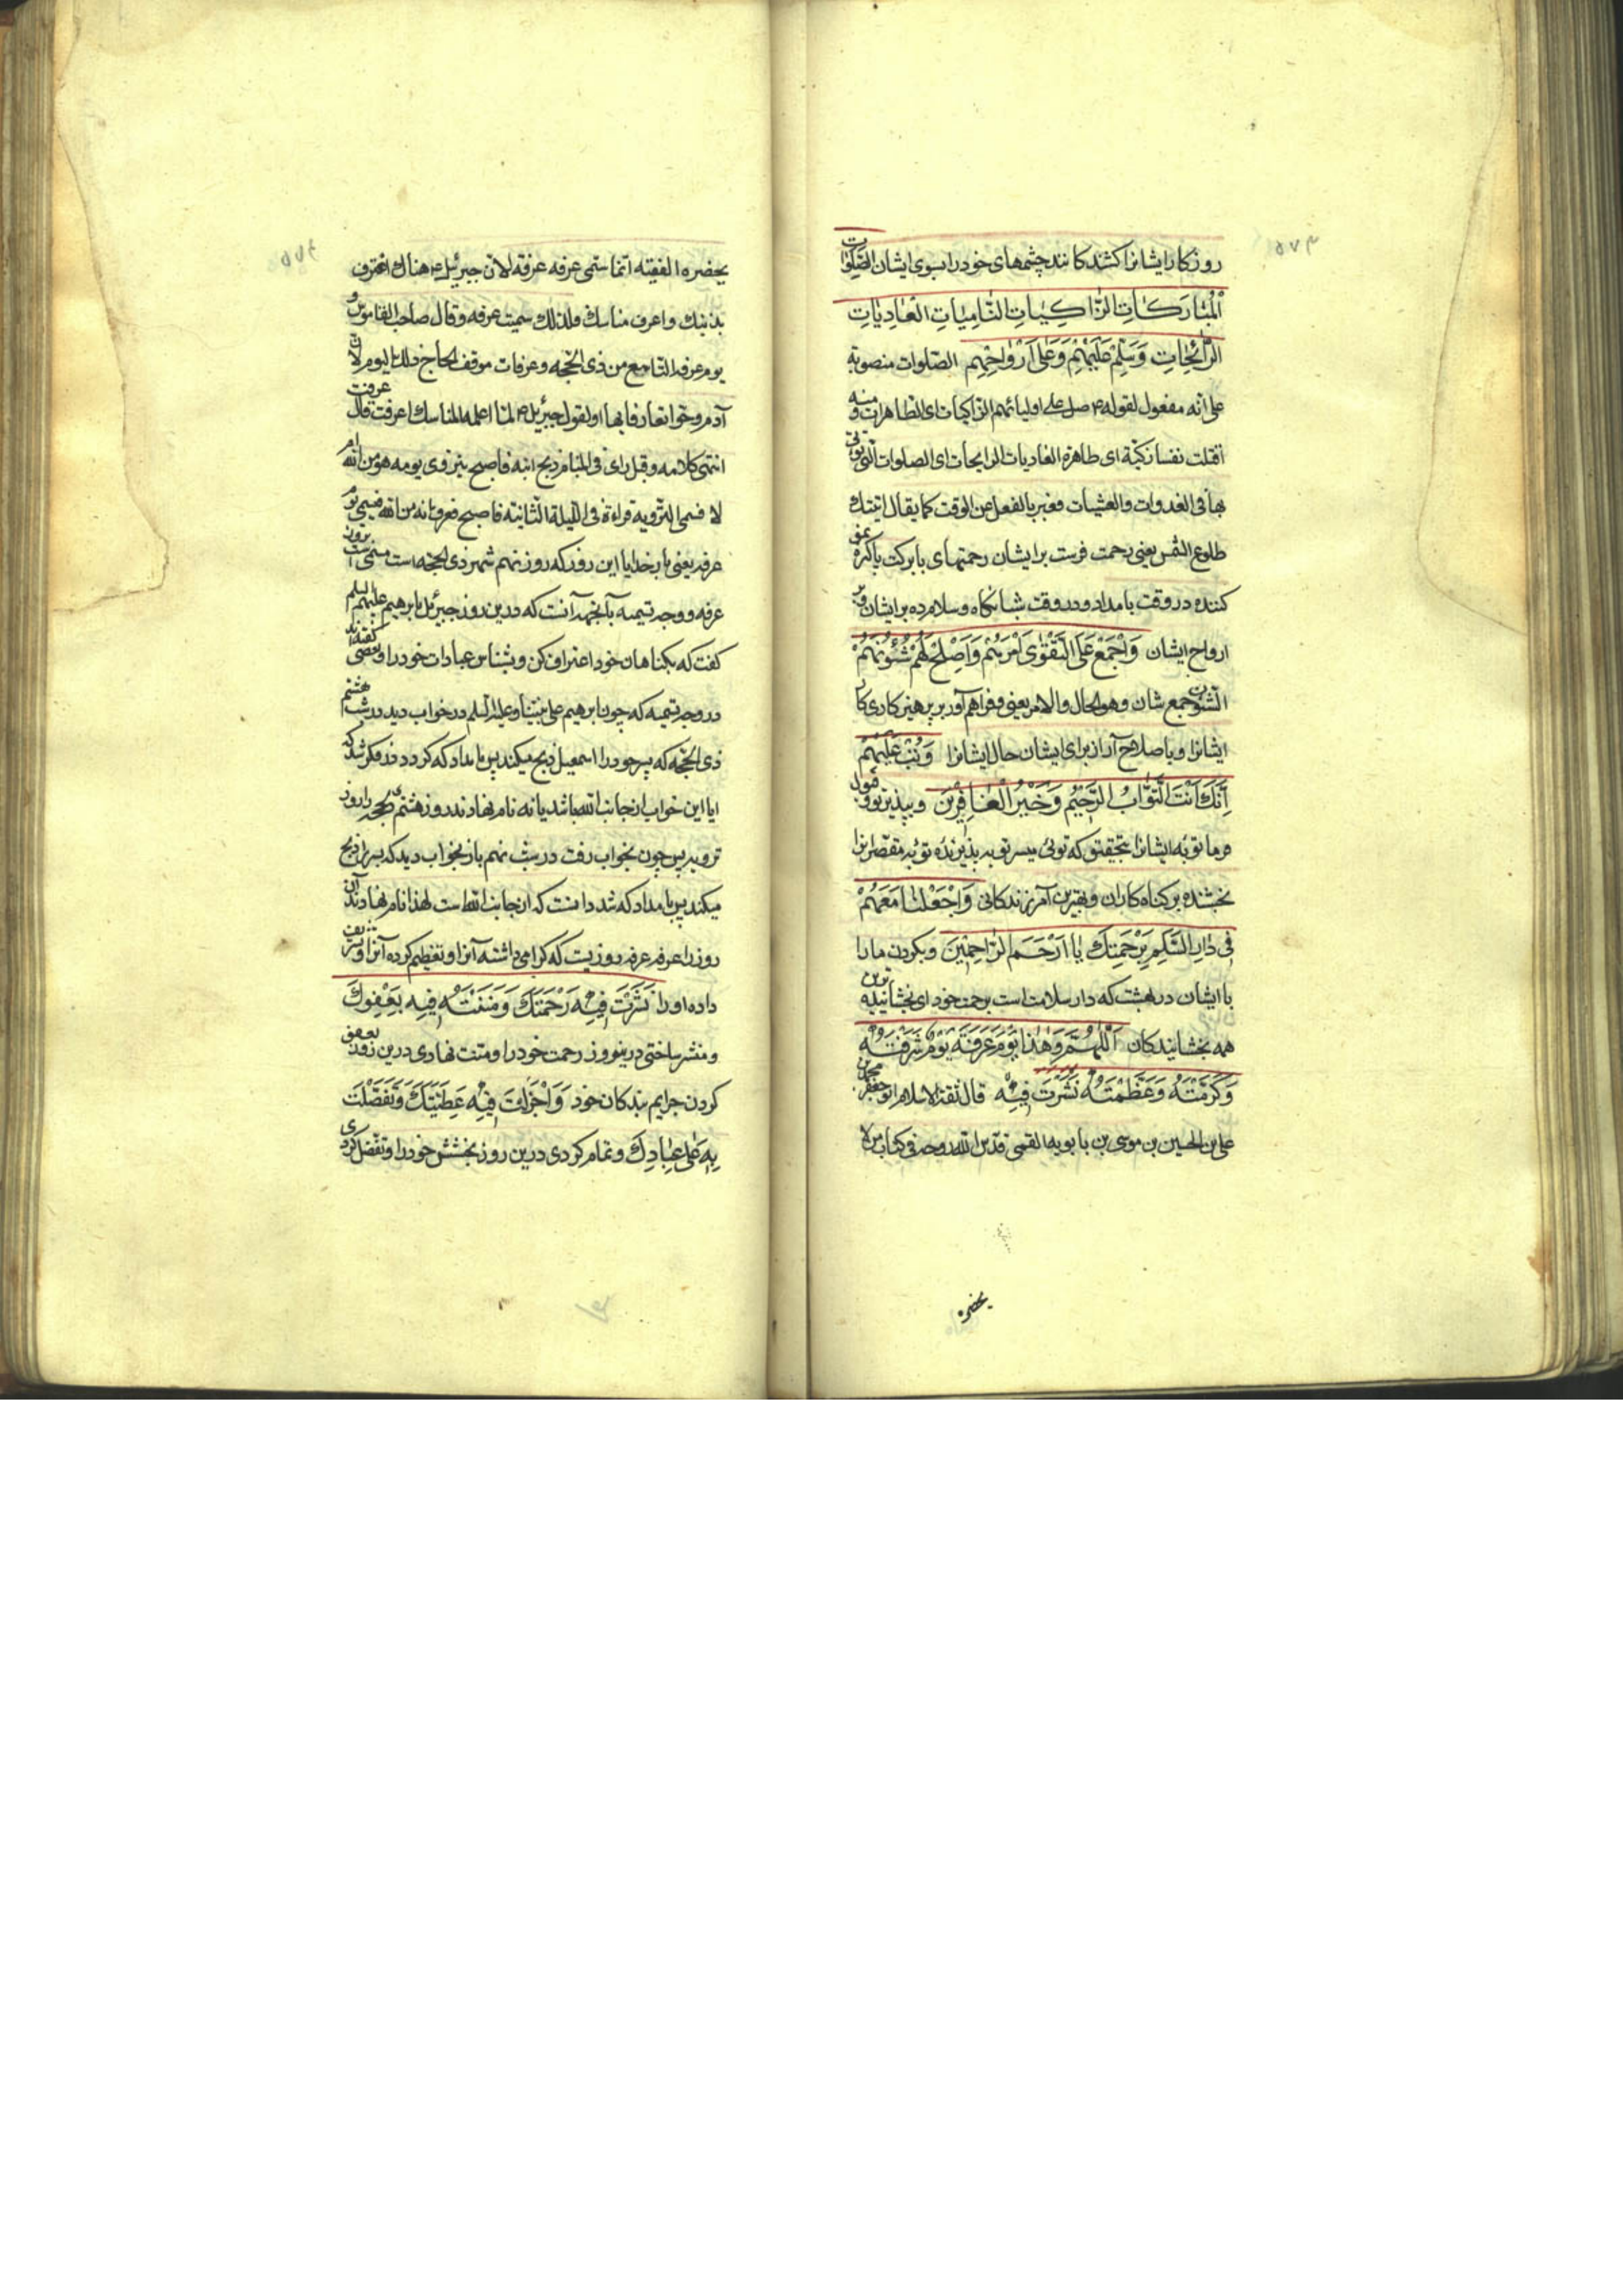 ۵۷۳
روزکار ایشانرا کشند کانند چشمهای خود را بسوی ایشان الصَّلَوات
اَلْمُبارَکاتِ الزّاکِیاتِ النّامِیاتِ الغادِیاتِ
الرّائِحاتِ وَسَلِّمْ عَلَیْهِمْ وَعَلی اَرْواحِهِمْ الصلوات منصوبة
علی انه مفعول لقوله ع صل علی اولیائهم الزاکیات ای الطاهرات ومنه
اقتلت نفسا زکیّة ای طاهرة الغادیات الرایحات ای الصلوات التی یؤتی
بها فی الغدوات والعشیات فعبر بالفعل عن الوقت کما یقال اتیتک
طلوع الشمس یعنی رحمت فرست بر ایشان رحمتهای با برکت پاکزه نمو
کننده در وقت بامداد و در وقت شبانکاه و سلام ده بر ایشان و بر
ارواح ایشان وَاجْمَعْ عَلَی التَّقْوی اَمْرَهُمْ وَاَصْلِحْ لَهُمْ شُئُونَهُمْ
الشئون جمع شان وهو الحال والامر یعنی و فراهم آور بر پرهیزکاری کار
ایشانرا و باصلاح آر از برای ایشان حال ایشانرا وَتُبْ عَلَیْهِمْ
اِنَّکَ اَنْتَ التَّوّابُ الرَّحیمُ وَخَیْرُ الْغافِرینَ و بپذیر توو قبول
فرما توبه ایشانرا بتحقیق که توئی میسر توبه پذیرنده توبه مقصرانرا
بخشنده بر کناه کاران و بهترین آمرزندکانی وَاجْعَلْنا مَعَهُمْ
فی دارِ السَّلامِ بِرَحْمَتِکَ یا اَرْحَمَ الرّاحِمینَ و بکردن ما را
با ایشان در بهشت که دار سلامت است برحمت خود ای بخشاینده ترین
همه بخشایندکان اَللّهُمَّ وَهذا یَوْمُ عَرَفَةَ یَوْمٌ شَرَّفْتَهُ
وَکَرَّمْتَهُ وَعَظَّمْتَهُ نَشَرْتَ فیهِ قال ثقة الاسلام ابو جعفر محمد بن
علی بن الحسین بن موسی بن بابویه القمی قدس الله روحه فی کتاب من لا
یحضره
یحضره الفقیه انما سمی عرفه عرفة لان جبرئیل ع هناک اعترف
بذنبک واعرف مناسک فلذلک سمیت عرفه وقال صاحب القاموس و
یوم عرفه التاسع من ذی الحجه وعرفات موقف الحاج ذلک الیوم لان
آدم وحوا تعارفا بها او لقول جبرئیل ع لما اعلمه المناسک اعرفت قال عرفت
انتهی کلامه وقیل رای فی المنام ذبح ابنه فاصبح یتروی یومه هو من الله ام
لا فسمی الترویه فراءه فی اللیلة الثانیة فاصبح فعرف انه من الله فسمی یوم
عرفه یعنی بار خدایا این روز که روز نهم شهر ذی الحجه است مسمی است بروز
عرفه ووجه تسمیه بآن جهه آنست که درین روز جبرئیل بابرهیم علیهم السلم
کفت که بکناهان خود اعتراف کن و بشناس عبادات خود را و بعضی کفته اند
در وجه تسمیه که چون ابرهیم علی نبینا و علیه السلم در خواب دید در شب هشتم
ذی الحجه که پسر خود را اسمعیل ذبح میکند پس بامداد که کرد در فکر شد که
ایا این خواب از جانب الله باشد یا نه نام نهادند روز هشتم ذیحجه را روز
ترویه پس چون بخواب رفت در شب نهم باز بخواب دید که پسر را ذبح
میکند پس بامداد که شد دانست که از جانب الله است لهذا نام نهادند آن
روز را عرفه عرفه روزیست که کرامی داشته آنرا و تعظیم کرده آنرا و تشریف
داده او را نَشَرْتَ فیهِ رَحْمَتَکَ وَمَنَنْتَ فیهِ بِعَفْوِکَ
و منتشر ساختی درینروز رحمت خود را و منت نهادی درین روز بعفو
کردن جرایم بندکان خود وَاَجْزَلْتَ فیهِ عَطِیَّتَکَ وَتَفَضَّلْتَ
بِهِ عَلی عِبادِکَ و تمام کردی درین روز بخشش خود را و تفضل کردی